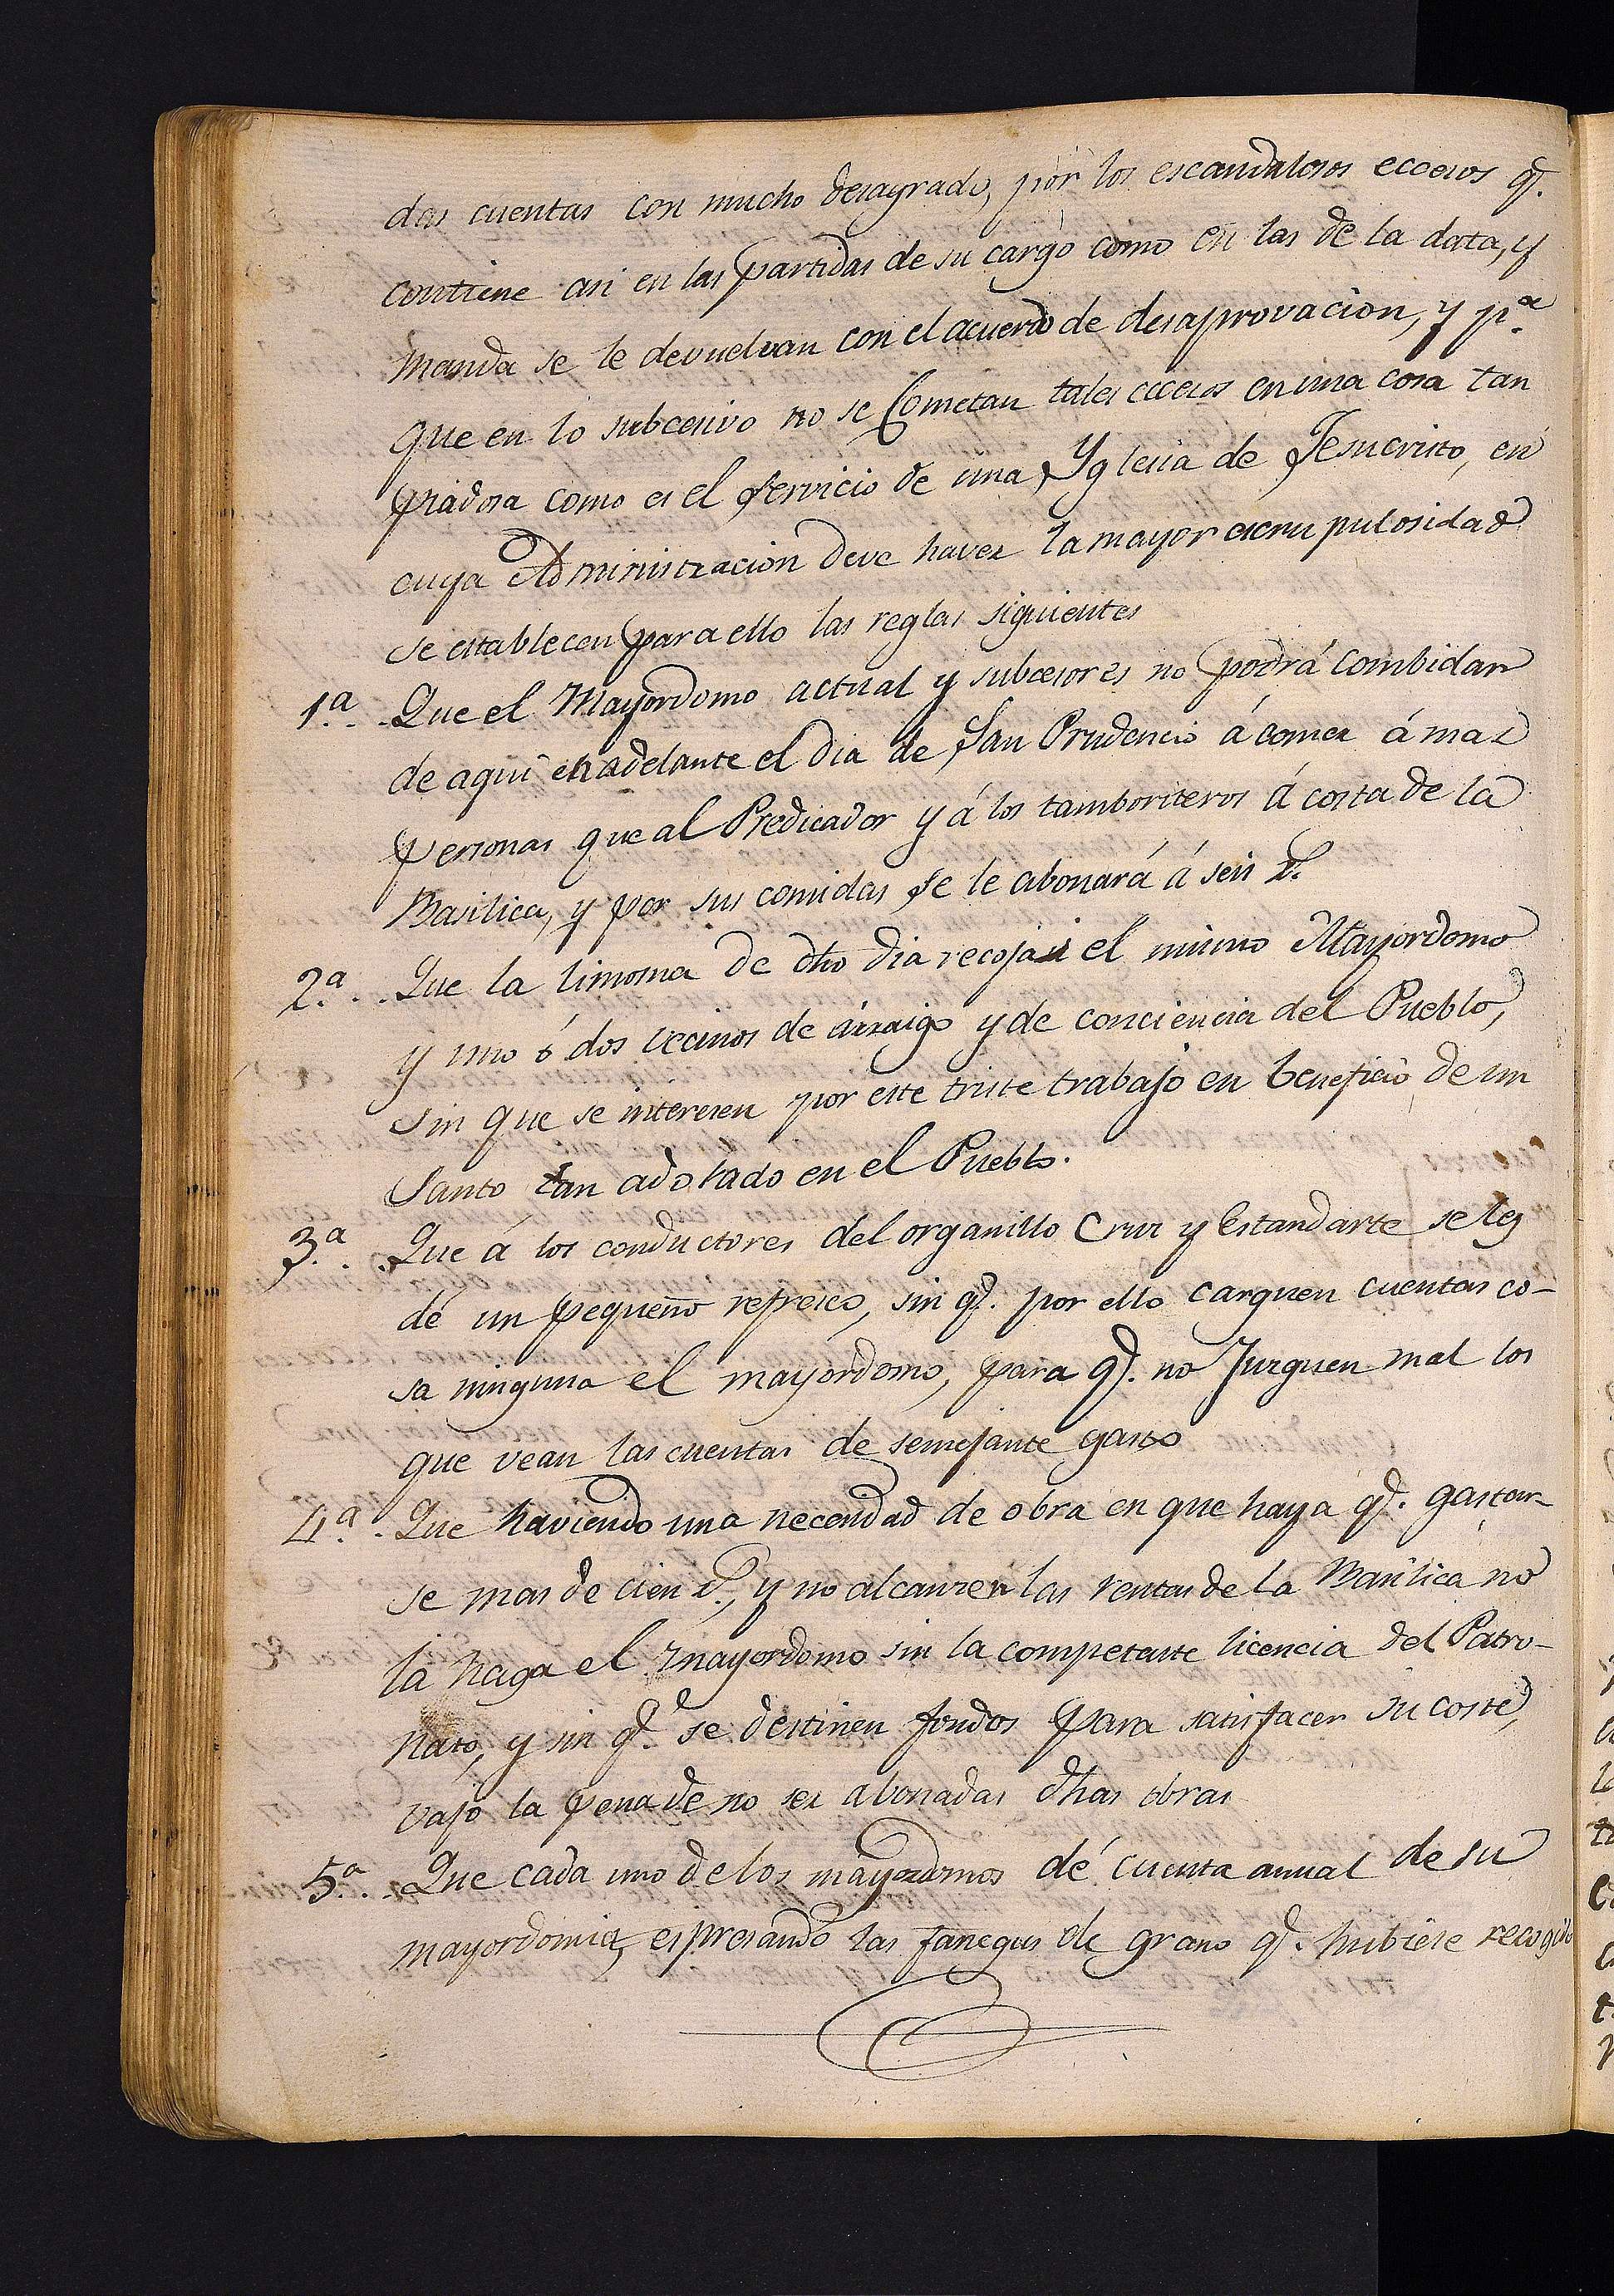 das cuentas con mucho desagrado, por los escandalosos eccesos q.
contiene asi en las partidas de su cargo como en las de la data, y
manda se le devuelvan con el acuerdo de desaprovacion, y p.ª
que en lo subcesivo no se Cometan tales eccesos en una cosa tan
piadosa como es el servicio de una Yglesia de Jesucristo, en
cuya Administracion deve haver la mayor escrupulosidad
se establecen para ello las reglas siguientes
1.ª.. Que el Mayordomo actual y subcesores no podrá combidar
de aqui en adelante el dia de San Prudencio á comer á mas
personas que al Predicador y á los tamboriteros á costa de la
Basilica, y por sus comidas se le abonará á seis r.
2.ª.. Que la limosna de dho dia recoja el mismo Mayordomo
y uno ó dos vecinos de arraigo y de conciencia del Pueblo,
sin que se interesen por este triste trabajo en beneficio de un
Santo tan adorado en el Pueblo.
3.ª.. Que á los conductores del organillo Cruz y Estandarte se les
dé un pequeño refresco, sin q. por ello carguen cuentas co-
sa ninguna el mayordomo, para q. no Juzguen mal los
que vean las cuentas de semejante gasto
4.ª. Que haviendo una necesidad de obra en que haya q. gastar-
se mas de cien r., y no alcanzen las rentas de la Basilica no
la haga el mayordomo sin la competente licencia del Patro-
nato, y sin q. se destinen fondos para satisfacer su coste,
vajo la pena de no ser abonadas dhas obras
5.ª.. Que cada uno de los mayordomos dé cuenta anual de su
mayordomia, espresando las fanegas de grano q. hubiese recogido